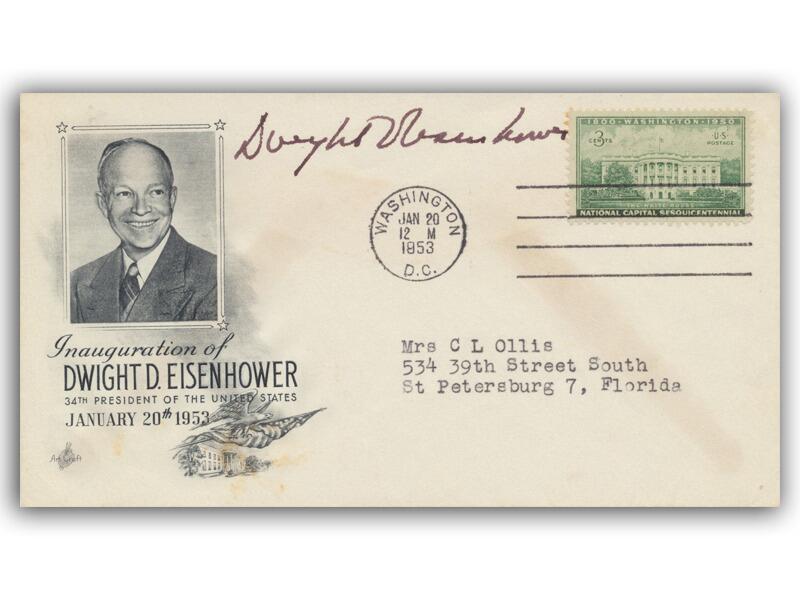 Dwight D Eisenhower
1800 - WASHINGTON - 1950
3 CENTS
U·S· POSTAGE
THE WHITE HOUSE
NATIONAL CAPITAL SESQUICENTENNIAL
WASHINGTON
JAN 20
12 M
1953
D.C.
Inauguration of
DWIGHT D. EISENHOWER
34TH PRESIDENT OF THE UNITED STATES
JANUARY 20th 1953
Art Craft
Mrs C L Ollis
534 39th Street South
St Petersburg 7, Florida